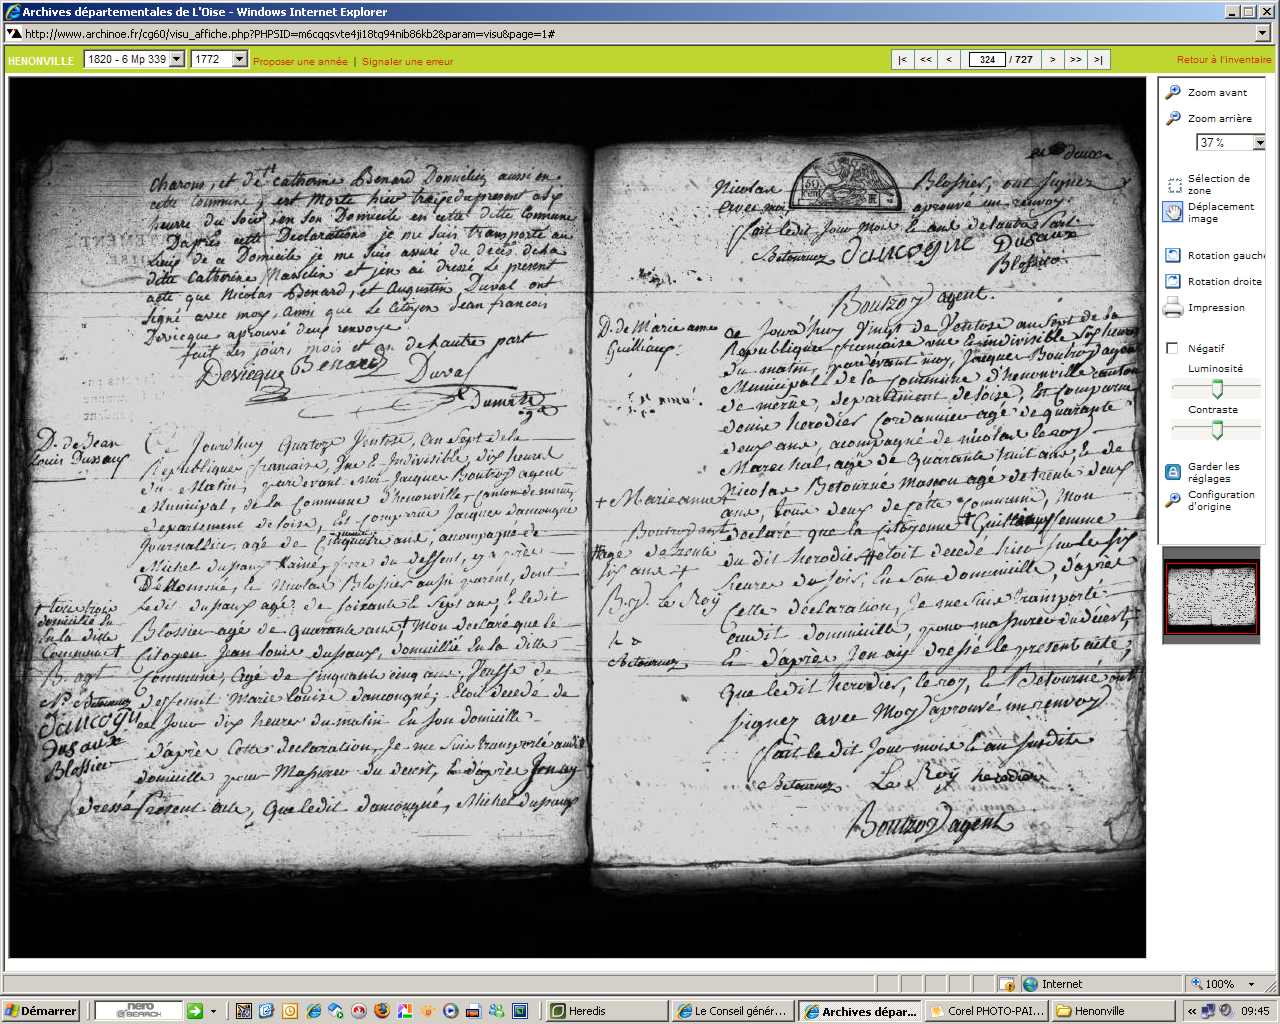 Archives départementales de L'Oise - Windows Internet Explorer
http://www.archinoe.fr/cg60/visu_affiche.php?PHPSID=m6cqqsvte4ji18tq94nib86kb2&param=visu&page=1#
HENONVILLE 1820 - 6 Mp 339 1772 Proposer une année | Signaler une erreur |< << < 324 / 727 > >> >| Retour à l'inventaire
Charons, et de catherine Benard Domiciliez aussi en
cette commune, est morte hier treize du present a six
heure du soir en son Domicile en cette ditte Commune
D'après cette Declarations je me suis transporté au
Lieux de ce Domicile je me suis assuré du décès de la
ditte Catherine et j'en ai dressé Le present
acte que Nicolas Benard, et Augustin Duval ont
signé avec moy, ainsi que Le Citoyen Jean francois
Devicque aprouvé deux renvoye.
fait Les jour, mois et an de hautre part
Devicque Benard Duval
D. de Jean
Louis Dussaux
Ce Jourdhuy Quatorze Ventose, an Sept de la
Republique francaise, une & Indivisible, dix heures
du Matin, pardevant Moi Jacque Boutroy agent
Municipal, de la Commune d'henonville, canton de meru,
departement de loise, Est Comparue Jacque dancongné
Journallier, agé de Cinquante ans, acompagné de
Michel dussaux frere du deffunt, et
Nicolas Blossier aussi parent, dont
Ledit dussaux agé de soixante & sept ans, & ledit
Blossier agé de quarante ans, Mon declaré que le
Citoyen Jean Louis dussaux, domicillié En la ditte
Commune, agé de Cinquante cinq ans, Veuf de
deffunte Marie Louise dancongné, Etoit decedé de
ce Jour dix heures du matin En son domicille
d'après Cette declaration, Je me suis transporté audit
domicille pour M'assurer du decest, & d'après J'en ay
dressé Present acte, Que ledit dancongné, Michel dussaux
+ tous trois
domicilié
En la ditte
Commune +
B. agt
N. Betournez
Dancogne
Dusaux
Blossier
Nicolas Blossier, ont signez
avec moi, aprouvé un renvoy.
fait ledit Jour Mois & ans de lautre part
Betournez Dancogne Dusaux
Blossier
Boutroy agent.
D. de Marie anne
Guilliaux.
Ce Jourdhuy Vingt de Ventose an Sept de la
Republique francaise une & indivisible Six heures
du matin, pardevant moy, Jacque Boutroy agent
Municipal de la Commune d'henonville canton
de merue, departement de loise, Est Comparue
herodies Cordonnier agé de quarante
deux ans, acompagné de nicolas le roy
Marechal, agé de Quarante huit ans, & de
Nicolas Betourne Masson agé de trente deux
ans, tous deux de Cette Commune, Mon
declaré que la Citoyenne + Guilliaux femme
du dit herodies # etoit decedé hier sur les six
heures du soir, En son domicille, d'après
Cette declaration, Je me suis transporté
audit domicille, pour m'assurer du décest,
& d'après J'en ay dressé le present acte,
Que ledit herodies, le roy, & Betourné ont
signez avec Moy aprouvé un renvoy
fait ledit Jour mois & an susdite
Betournez Le Roy herodies
Boutroy agent
+ Marie anne +
Boutroy agent
# agé de trente
six ans +
B. agt. Le Roy
h D
Betournez
Zoom avant
Zoom arrière
37 %
Sélection de
zone
Déplacement
image
Rotation gauche
Rotation droite
Impression
Négatif
Luminosité
Contraste
Garder les
réglages
Configuration
d'origine
Internet 100%
Démarrer nero SEARCH Heredis Le Conseil génér... Archives dépar... Corel PHOTO-PAI... Henonville 09:45